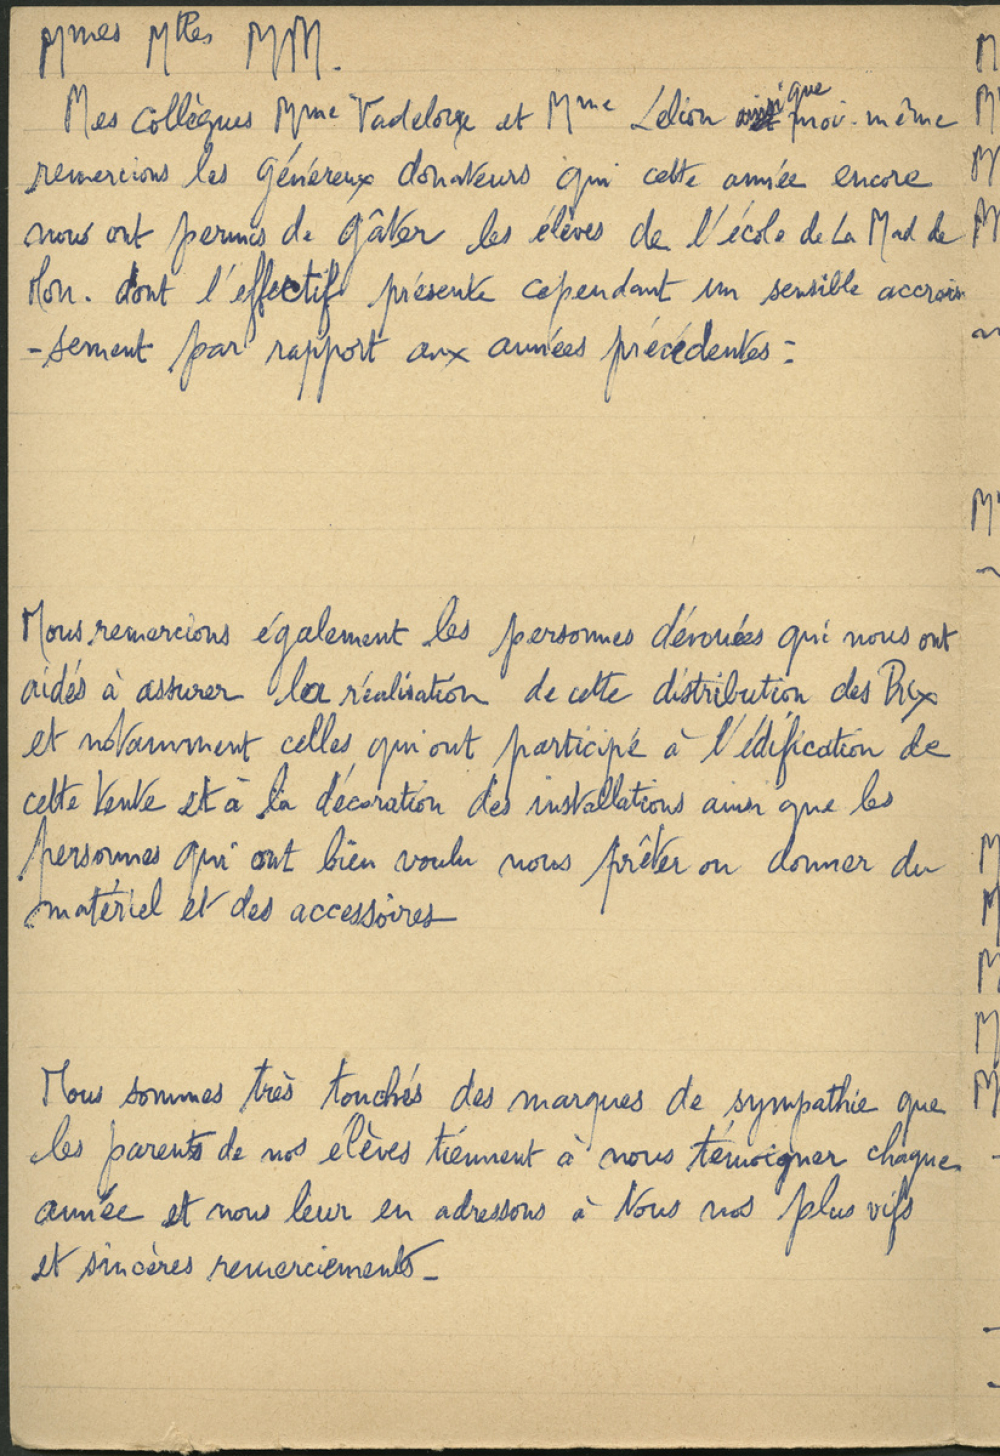 Mmes Mlles MM.
Mes collègues Mme Vadelorge et Mme Lelion ainsi que moi-même
remercions les généreux donateurs qui cette année encore
nous ont permis de gâter les élèves de l'école de La Mad de
Mon. dont l'effectif présente cependant un sensible accrois
-sement par rapport aux années précédentes :
Nous remercions également les personnes dévouées qui nous ont
aidés à assurer la réalisation de cette distribution des Prix
et notamment celles qui ont participé à l'édification de
cette tente et à la décoration des installations ainsi que les
personnes qui ont bien voulu nous prêter ou donner du
matériel et des accessoires
Nous sommes très touchés des marques de sympathie que
les parents de nos élèves tiennent à nous témoigner chaque
année et nous leur en adressons à tous nos plus vifs
et sincères remerciements_